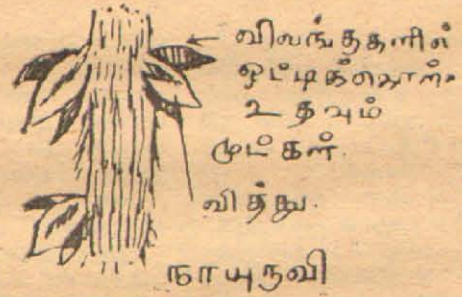 விலங்குகளில்
ஒட்டிக்கொள்ள
உதவும்
முட்கள்.
வித்து.
நாயுருவி